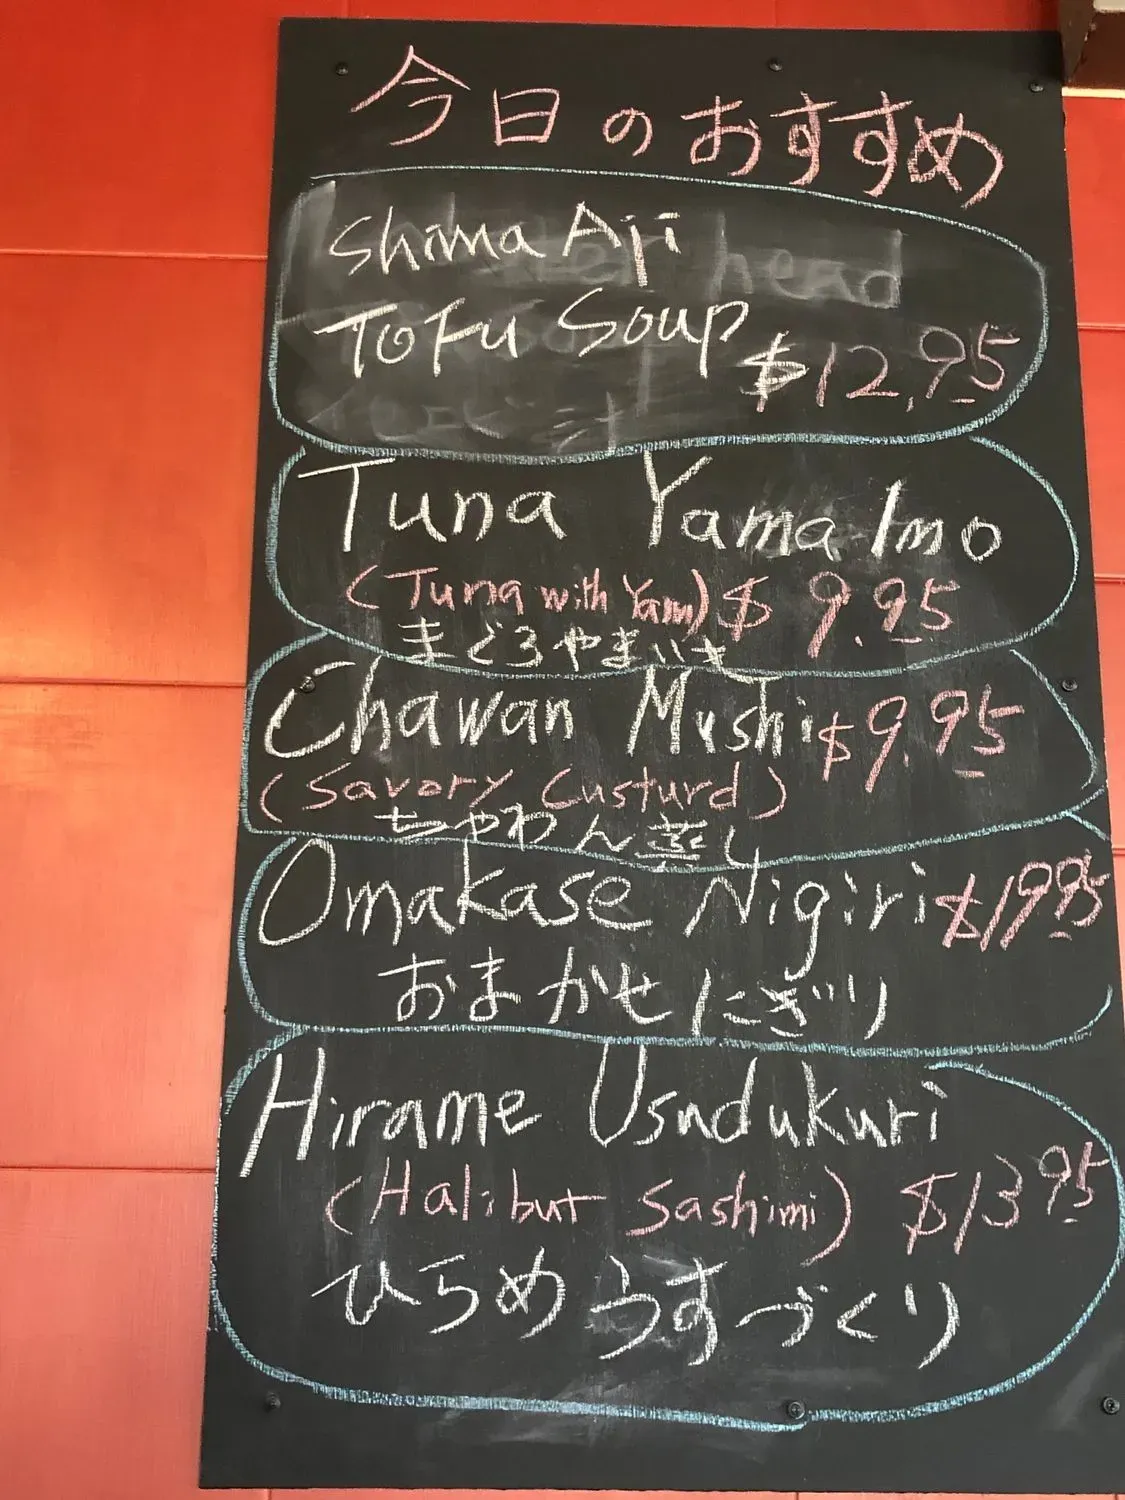 今日のおすすめ
Shima Aji
Tofu Soup $12.95
Tuna Yama Imo
(Tuna with Yam) $9.95
まぐろやまいも
Chawan Mushi $9.95
(Savory Custurd)
ちゃわん蒸し
Omakase Nigiri $19.95
おまかせにぎり
Hirame Usudukuri
(Halibut Sashimi) $13.95
ひらめうすづくり